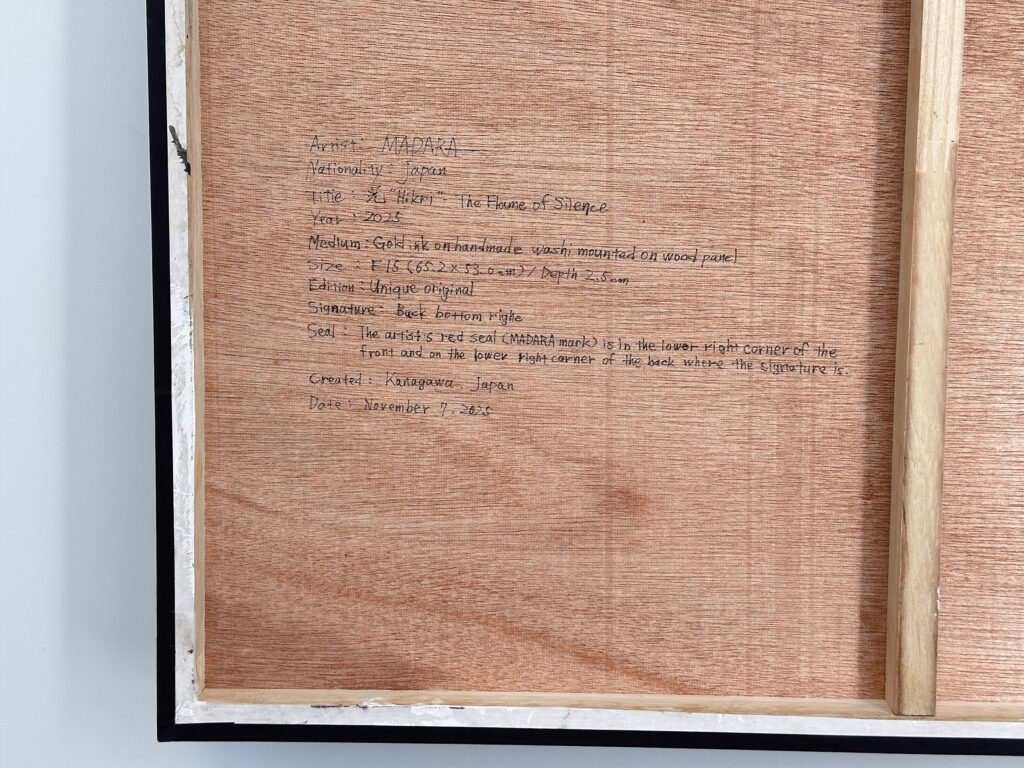 Artist: MADARA
Nationality: Japan
Title: 光 "Hikri" - The Flame of Silence
Year: 2025
Medium: Gold ink on handmade washi mounted on wood panel
Size: F15 (65.2×53.0cm) / Depth 2.5cm
Edition: Unique original
Signature: Back bottom righe
Seal: The artist's red seal (MADARA mark) is in the lower right corner of the
front and on the lower right corner of the back where the signature is.
Created: Kanagawa. Japan
Date: November 7. 2025